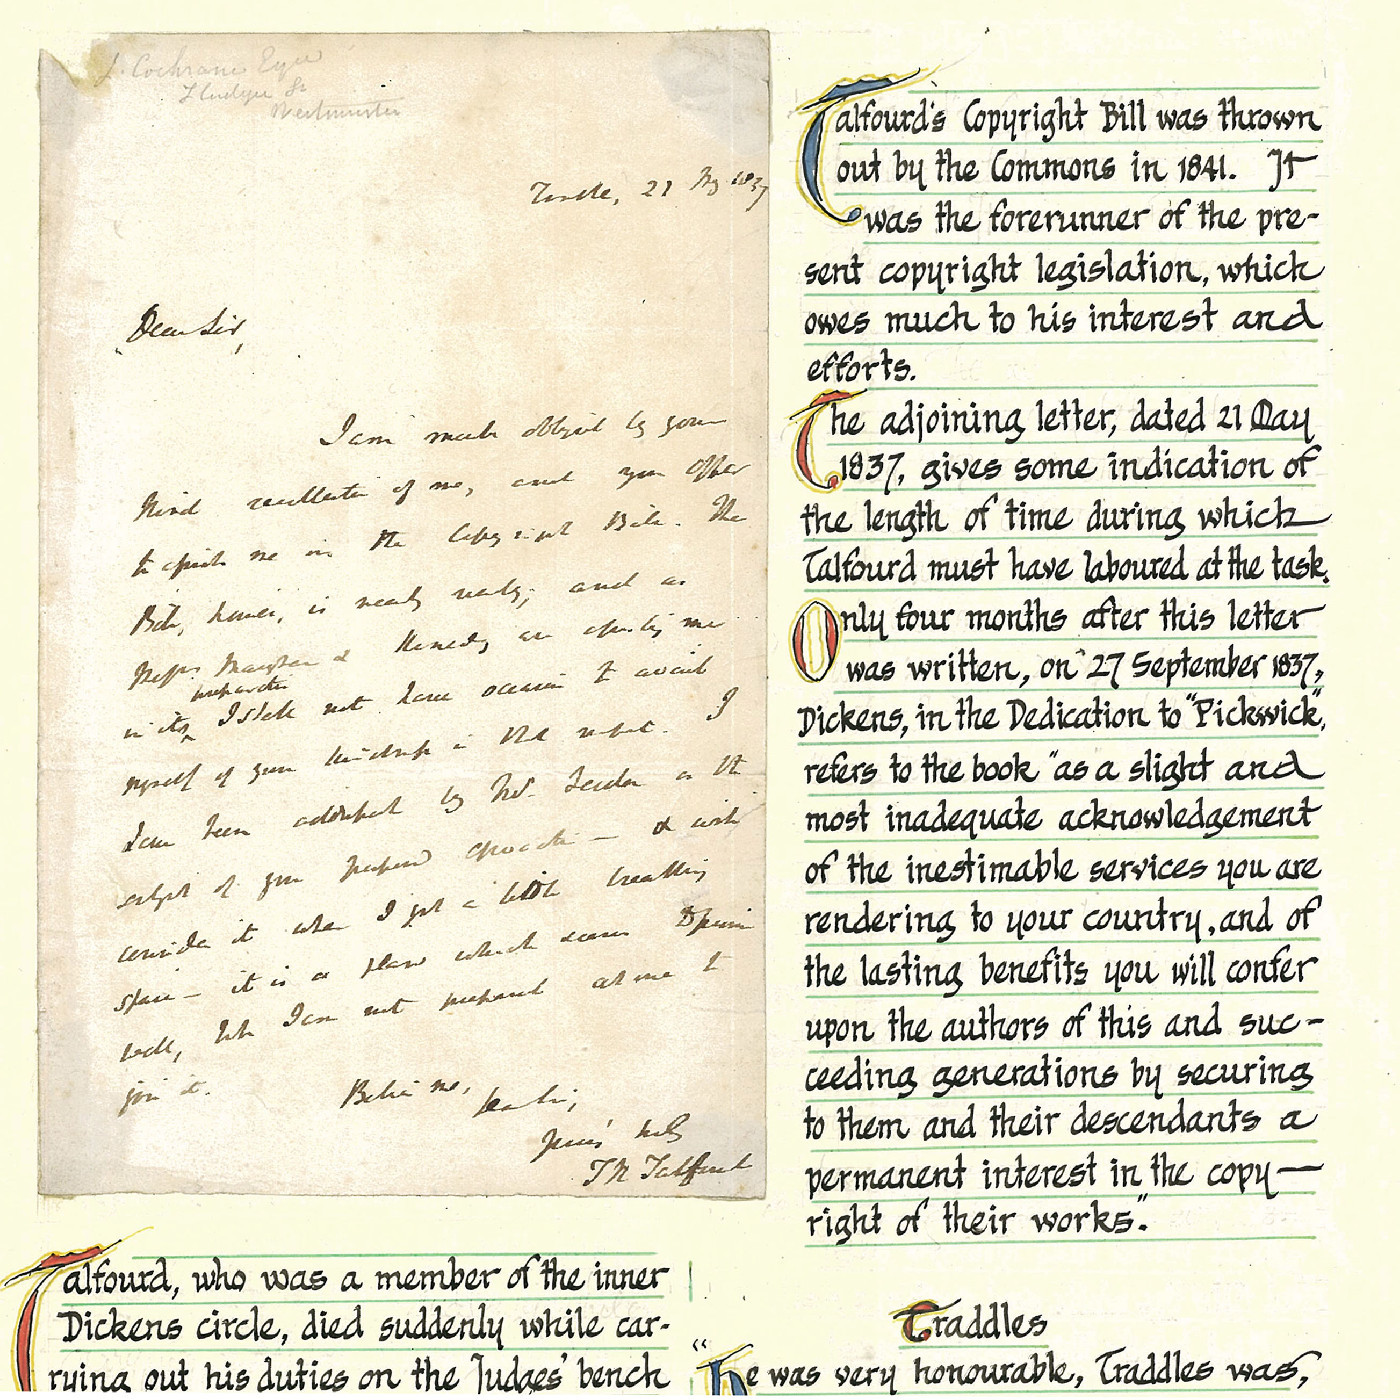 J. Cochrane Esqre
Westminster
Temple, 21 May 1837
Dear Sir,
I am much obliged by your
kind recollection of me, and your offer
to assist me in the Copyright Bill. The
Bill, however, is nearly ready; and as
Messrs. & are assisting me
preparation
in its I shall not have occasion to avail
myself of your kindness in that respect. I
have been addressed by Mr. on the
subject of your proposed — & will
consider it when I get a little breathing
space — it is a plan which seems
well, but I am not prepared at once to
join it.
Believe me,
Dear Sir,
Yours truly
T N Talfourd
Talfourd's Copyright Bill was thrown
out by the Commons in 1841. It
was the forerunner of the pre-
sent copyright legislation, which
owes much to his interest and
efforts.
The adjoining letter, dated 21 May
1837, gives some indication of
the length of time during which
Talfourd must have laboured at the task.
Only four months after this letter
was written, on 27 September 1837,
Dickens, in the Dedication to "Pickwick",
refers to the book "as a slight and
most inadequate acknowledgement
of the inestimable services you are
rendering to your country, and of
the lasting benefits you will confer
upon the authors of this and suc-
ceeding generations by securing
to them and their descendants a
permanent interest in the copy-
right of their works".
Talfourd, who was a member of the inner
Dickens circle, died suddenly while car-
rying out his duties on the Judges' bench
Traddles
"He was very honourable, Traddles was,